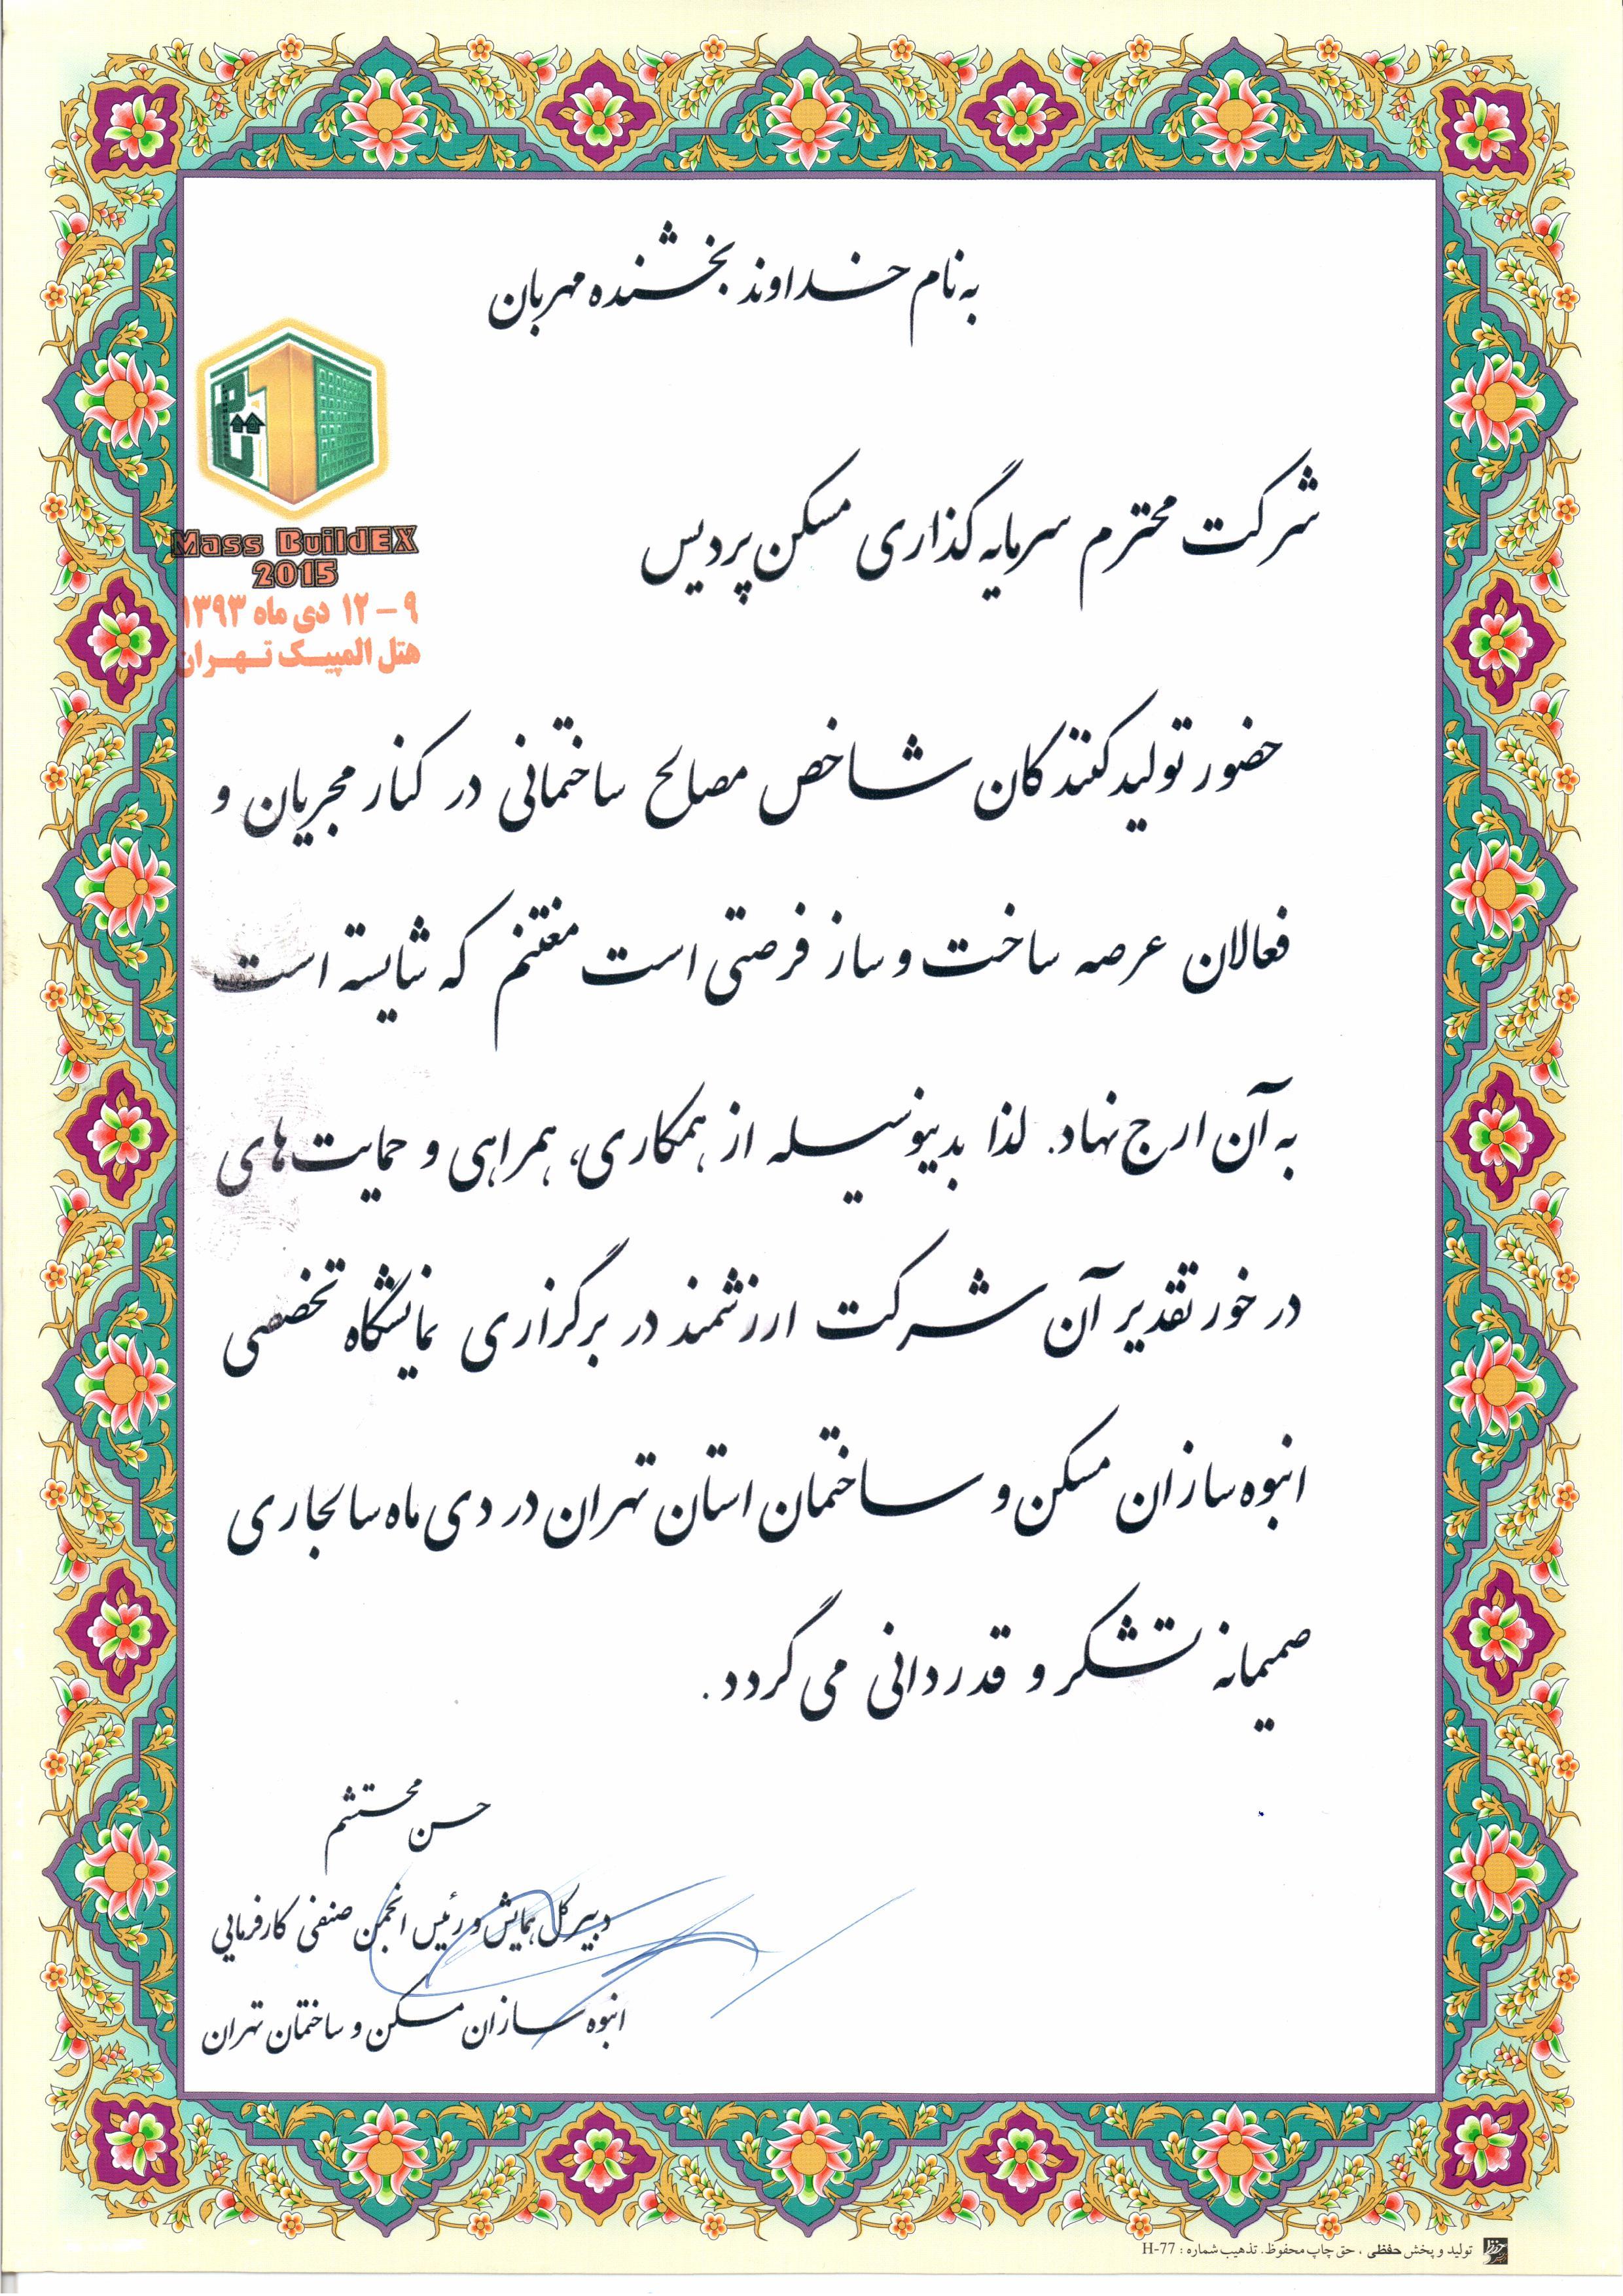 به نام خداوند بخشنده مهربان
Mass BuildEX
2015
۹ - ۱۲ دی ماه ۱۳۹۳
هتل المپیک تهران
شرکت محترم سرمایه گذاری مسکن پردیس
حضور تولید کنندگان شاخص مصالح ساختمانی در کنار مجریان و
فعالان عرصه ساخت و ساز فرصتی است مغتنم که شایسته است
به آن ارج نهاد. لذا بدینوسیله از همکاری، همراهی و حمایت های
در خور تقدیر آن شرکت ارزشمند در برگزاری نمایشگاه تخصصی
انبوه سازان مسکن و ساختمان استان تهران در دی ماه سالجاری
صمیمانه تشکر و قدردانی می گردد.
حسن محتشم
دبیر کل همایش و رئیس انجمن صنفی کارفرمایی
انبوه سازان مسکن و ساختمان تهران
تولید و پخش حفظی ، حق چاپ محفوظ. تذهیب شماره : H-77